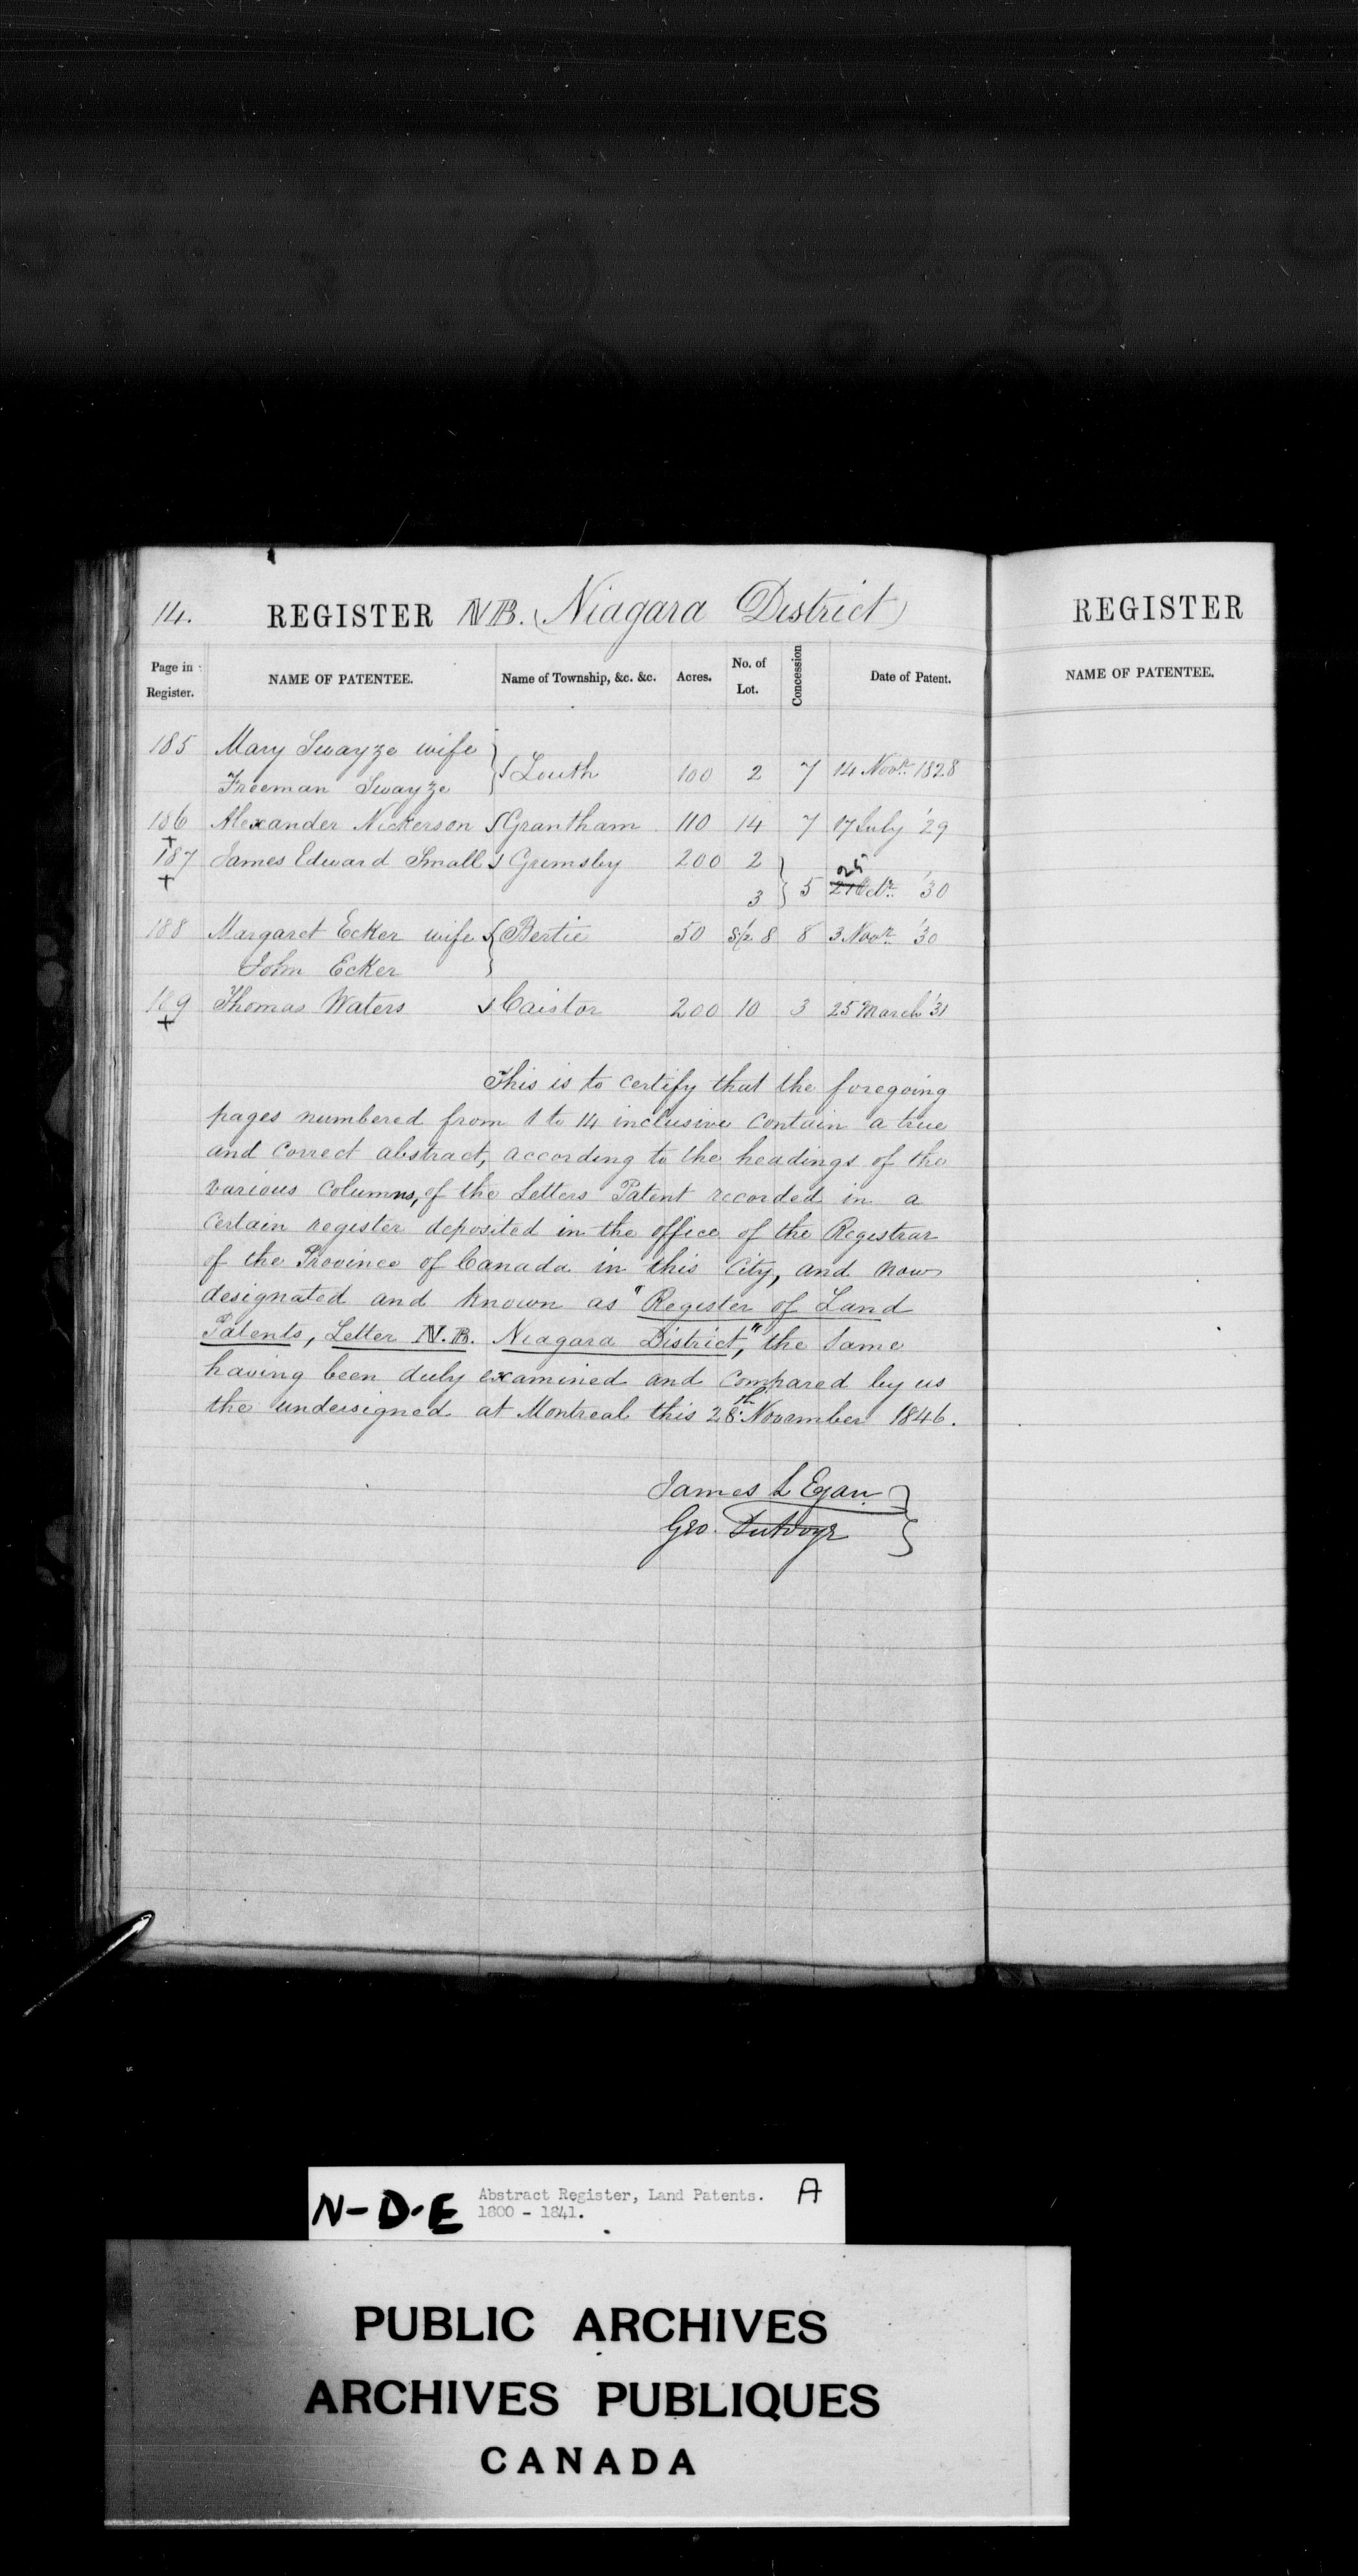 14. REGISTER NB. (Niagara District)
Page in Register. NAME OF PATENTEE. Name of Township, &c. &c. Acres. No. of Lot. Concession Date of Patent.
185 Mary Swayze wife
Freeman Swayze } Louth 100 2 7 14 Novr. 1828
186 Alexander Nickerson Grantham 110 14 7 17 July '29
+
187 James Edward Small Grimsby 200 2
+ 3 } 5 Octr. '30
188 Margaret Ecker wife { Bertie 50 S½ 8 8 3 Novr. '30
John Ecker }
189 Thomas Waters Caistor 200 10 3 25 March '31
+
This is to certify that the foregoing
pages numbered from 1 to 14 inclusive contain a true
and correct abstract, according to the headings of the
various columns, of the Letters Patent recorded in a
certain register deposited in the office of the Registrar
of the Province of Canada in this City, and now
designated and known as "Register of Land
Patents, Letter N.B. Niagara District," the same
having been duly examined and compared by us
the undersigned at Montreal this 28th November 1846.
James L Egan }
Geo.
REGISTER
NAME OF PATENTEE.
N-D-E Abstract Register, Land Patents. A
1800 - 1841.
PUBLIC ARCHIVES
ARCHIVES PUBLIQUES
CANADA